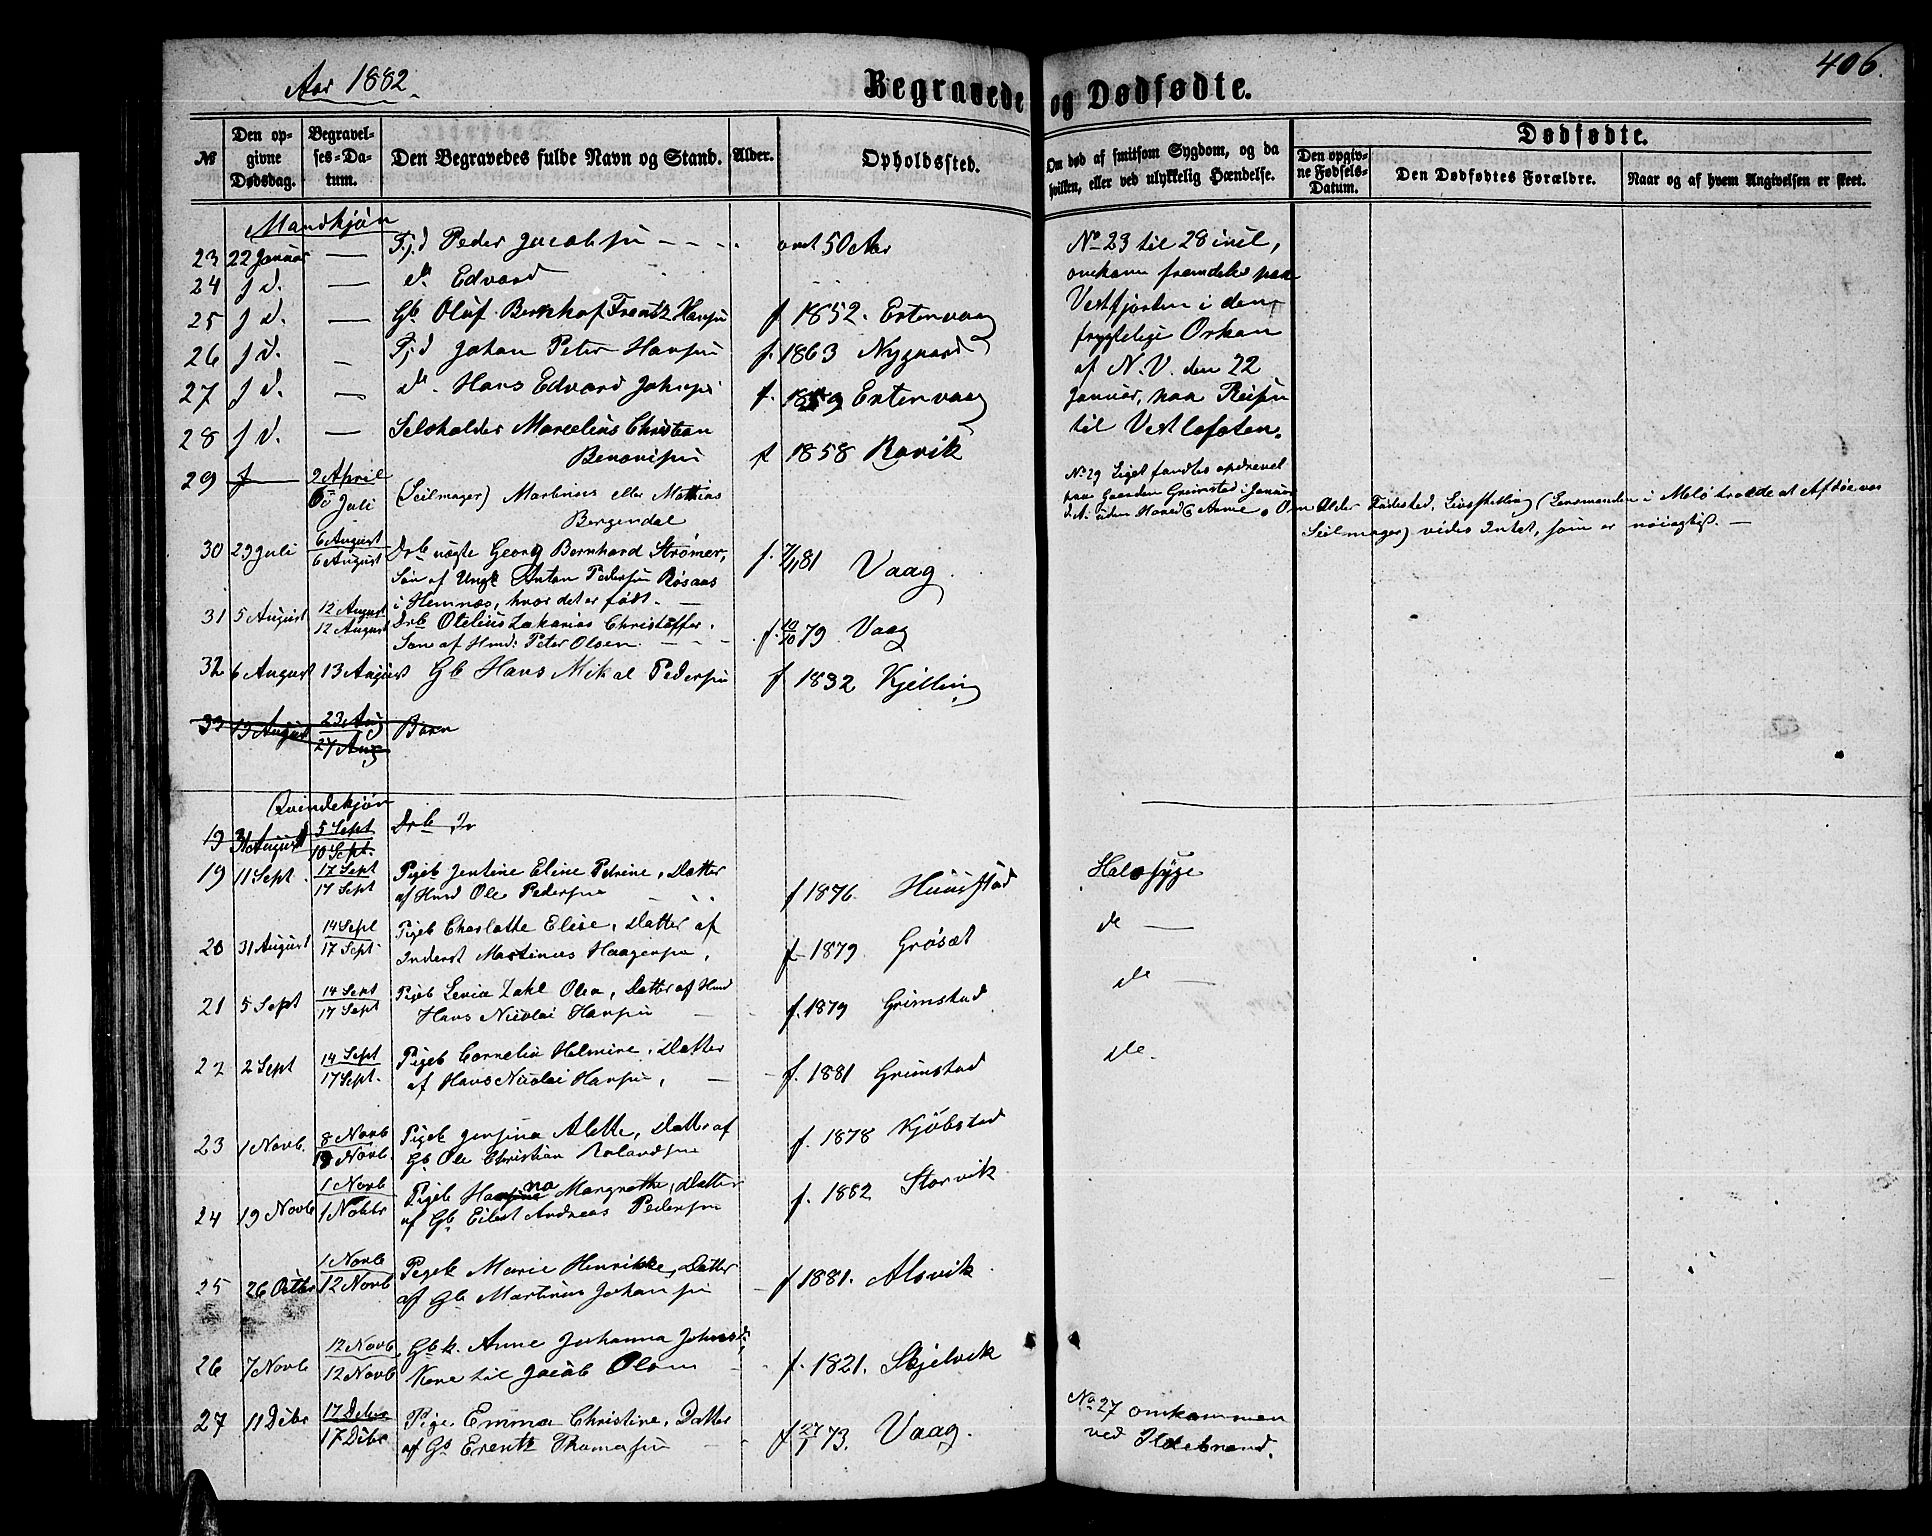 Aar 1882.
Begravede og Dødfødte.
406.
№
Den opgivne Dødsdag.
Begravelses-Datum.
Den Begravedes fulde Navn og Stand.
Alder.
Opholdssted.
Om død af smitsom Sygdom, og da hvilken, eller ved ulykkelig Hændelse.
Dødfødte.
Den opgivne Fødsels-Datum.
Den Dødfødtes Forældre.
Naar og af hvem Angivelsen er skeet.
Mandkjøn
23 22 Januar — Fjd Peder Jacobsen - - - omt 50 Aar
24 J d. — do Edvard
25 J d. — Gb Oluf Bernhof Frentz Hansen f 1852. Estenvaag
26 J d. — Fjd Johan Peter Hansen f. 1863 Nygaard
27 J d. — do Hans Edvard Johnsen f. 1859 Estenvaag
28 J d. — Selvholder Marcelius Christian
Benonisen f 1858 Ravik
No 23 til 28 incl,
omkom fremdeles paa
Vestfjorden i den
frygtelige Orkan
af N.V. den 22
Januar, paa Reisen
til Vestlofoten.
29 2 April
Juli (Seilmager) Martinus eller Mathias
Bergendal
No 29 Liget fandtes opdrevet
paa Gaarden Grimstad i Januar
d.A. uden Hoved & Arme. Om Alder, Fødested, Livsstilling (Lensmanden i Melø troede at Afdøe var
Seilmager) vides Intet, som er nøiagtig. —
30 29 Juli 6 August
6 August Drb uægte Georg Bernhard Strømer,
Søn af Ungk Anton Pedersen Røsaas
i Hemnæs, hvor det er født. — f. 7/11 81 Vaag
31 5 August 12 August
12 August Drb Otelius Zakarias Christoffer.
Søn af Hmd: Peter Olsen. - - f. 12/10 79 Vaag
32 6 August 13 August Gb Hans Mikal Pedersen f 1832 Kjelling
33 13 August 23 Aug
27 Aug Barn
Qvindekjøn
19 31 August 5 Sept
10 Sept. Drb
19 11 Sept. 17 Sept
17 Sept Pigeb Jentine Eline Petrine, Datter
af Hmd Ole Pedersen f 1876. Huusstad Halssyge
20 31 August 14 Sept
17 Sept. Pigeb Charlotte Elise, Datter af
Inderst Martinus Haagensen, f. 1879. Grøsæt do —
21 5 Sept 14 Sept
17 Sept Pigeb Levia Zahl Olea, Datter af Hmd
Hans Nicolai Hansen f. 1879 Grimstad do —
22 2 Sept 14 Sept
17 Sept. Pigeb Cornelia Helmine, Datter
af Hans Nicolai Hansen, — f. 1881 Grimstad do.
23 1 Novb. 8 Novb
Novb. Pigeb Jensina Alette, Datter af
Gb Ole Christian Rolandsen f. 1878 Kjøbstad
24 19 Novb 1 Novb
Pigeb Margrethe, Datter
af Gb Eilert Andreas Pedersen f. 1882 Storvik
25 26 Octbr 1 Novb
12 Novb Pigeb Marie Henrikke, Datter
af Gb Martinus Johansen f 1881. Alsvik
26 7 Novb 12 Novb
12 Novb Gbk. Anne Johanna Johnsd:
Kone til Jacob Olsen f. 1821. Skjelvik
27 11 Dcbr 17 Dcbr
17 Dcbr Pige Emma Christine, Datter
af Gb Erentz Thomassen f 27/1 73. Vaag.
No 27 omkommen
ved Ildebrand.